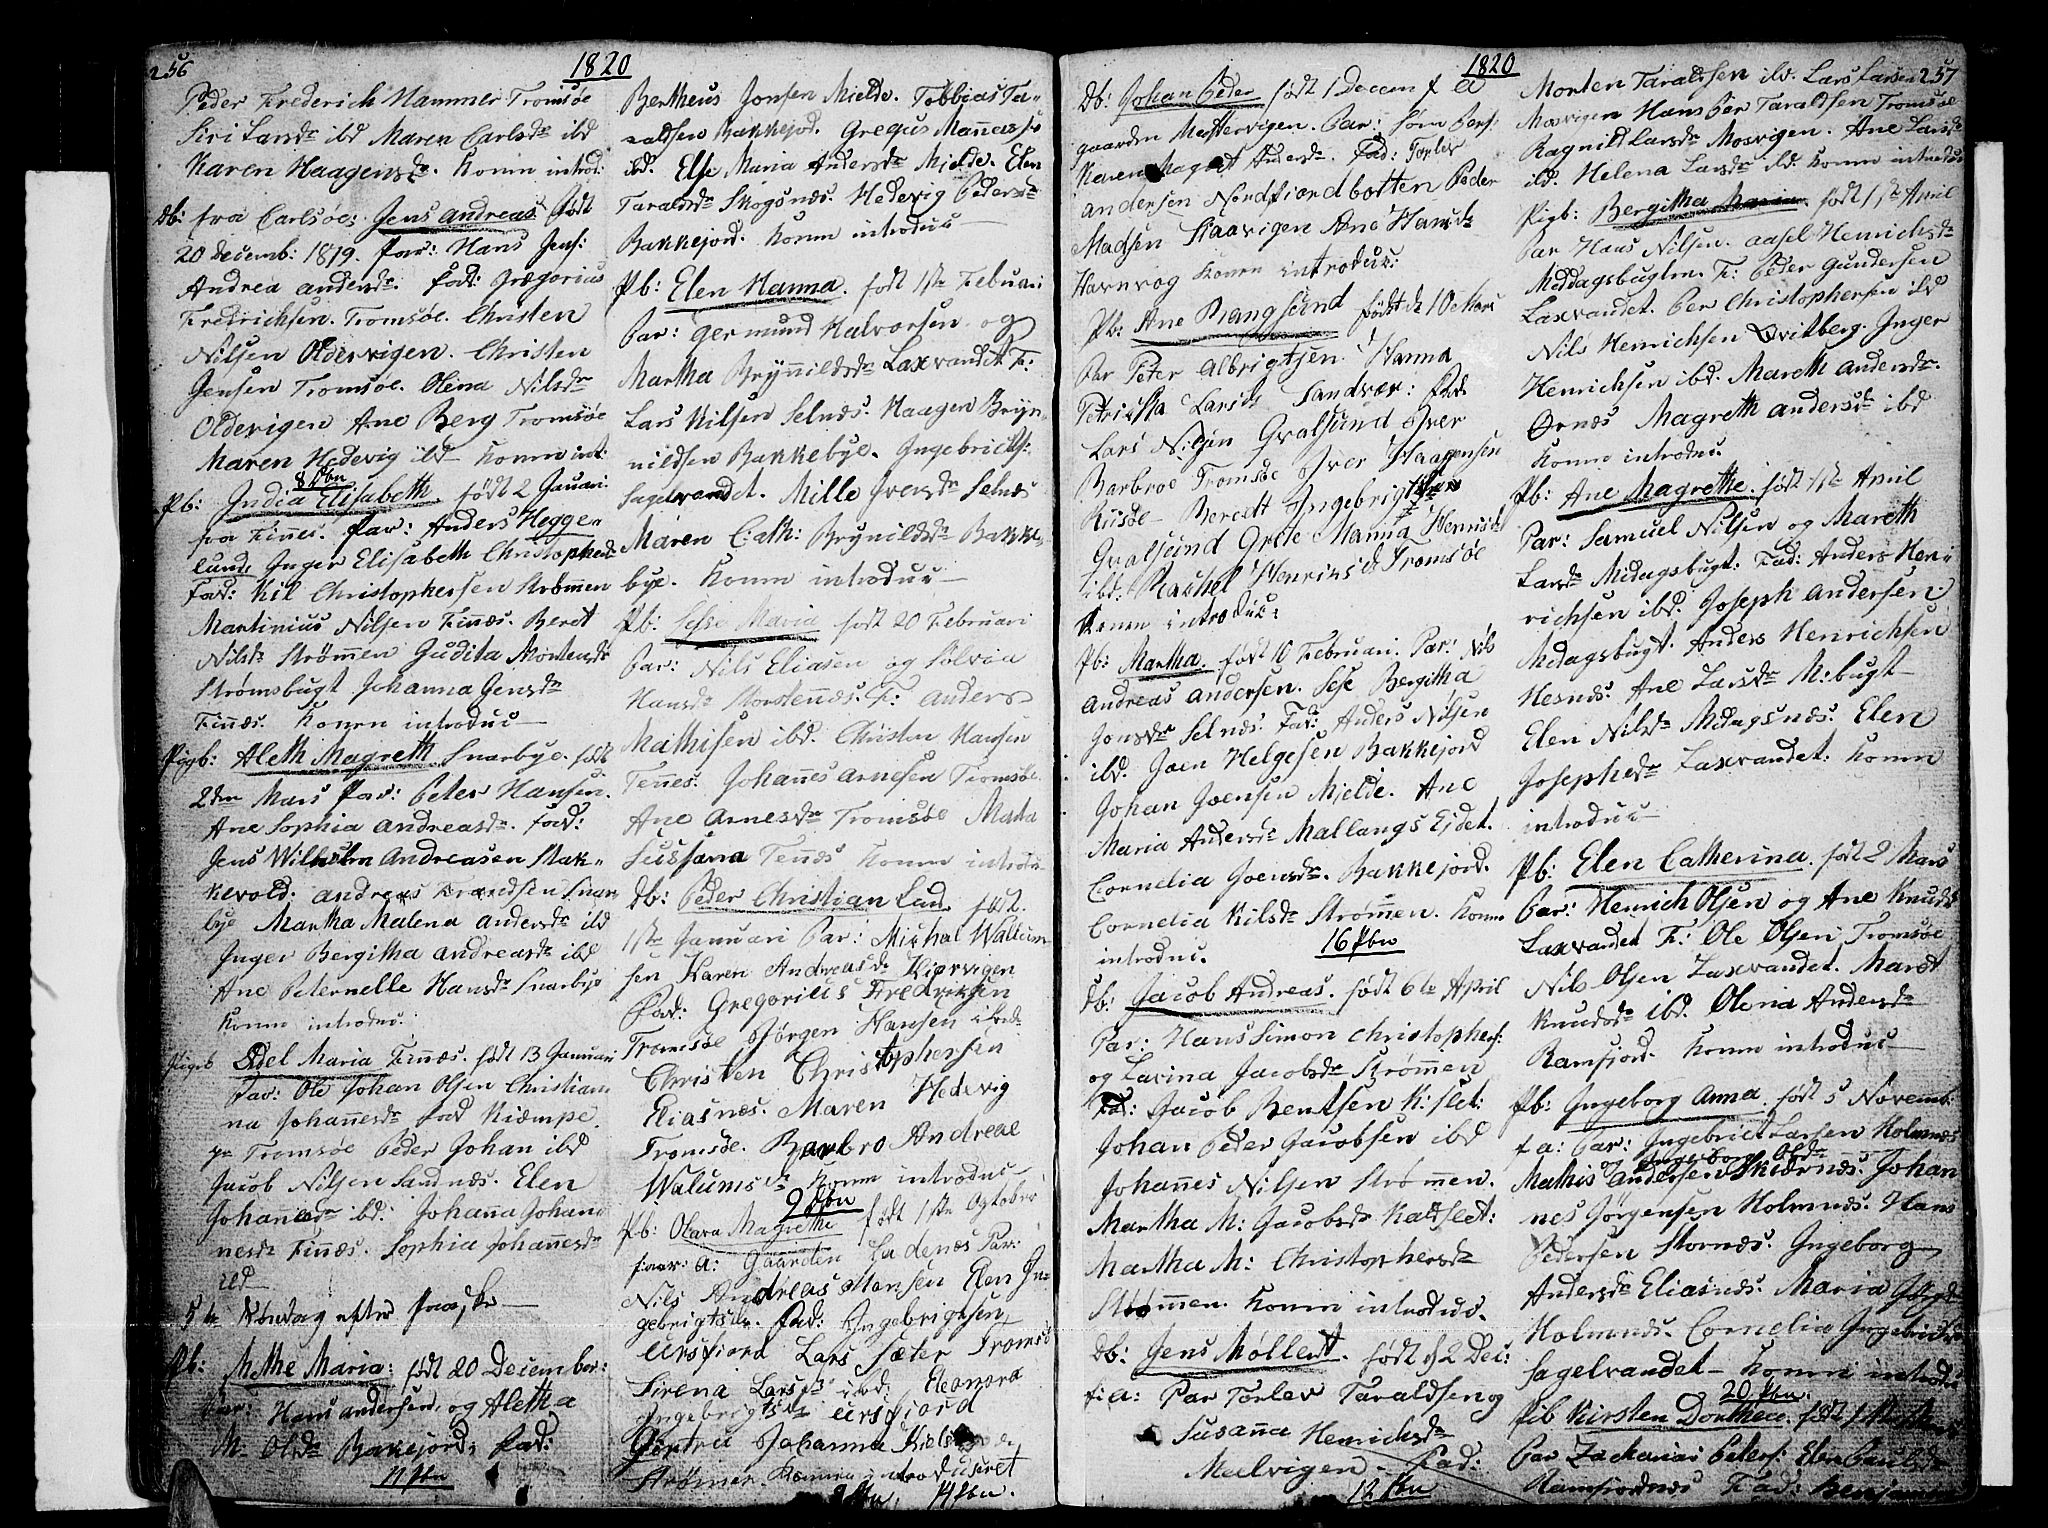 256
1820
Peder Frederich Hammer Tromsøe
Siri Larsdr ibd Maren Carlsdr ibd
Karen Haagensdr. Konen introd:
Db: fra Carlsøe: Jens Andreas født
20 Decemb: 1819. Par: Hans Jens:
Andrea Andersdr. Fad: Gregorius
Fredrichsen. Tromsøe. Christen
Nilsen Oldervigen. Christen
Jensen Tromsøe. Olina Nilsdr
Oldervigen Ane Berg Tromsøe
Maren Hedevig ibd Konen int:
8 Pbn
Pb: India Elisabeth. født 2 Januari
fra Finnes. Par: Anders Hegge-
lund, Inger Elisabeth Christophersdr
Fad: Kil Christophersen Strømmen
Martinius Nilsen Finnæs. Beret
Nilsdr Strømmen Judita Mortensdr
Strømsbugt Johanna Jensdr
Finnæs. Konen introdus
Pigb: Aleth Magreth Snarbye. født
2den Mars Par: Peter Hansen.
Ane Sophia Andreasdr. Fad:
Jens Wilhelm Andreasen Stak-
kevold. Andreas Frandsen Snar
bye Martha Malena Andersdr ibd
Inger Bergitha Andreasdr ibd
Ane Peternelle Hansdr Snarbye
Konen introdus.
Pigeb Edel Maria Finnæs. født 13 Januari
Par: Ole Johan Olsen Christian
na Johannesdr Fad Kiempe.
Tromsøe Peder Johan ibd
Jacob Nilsen Sandnæs. Elen
Johannesdr ibd: Johana Johan
nesdr Finnæs. Sophia Johannesdr
5te Søndag efter Paaske
Pb: Methe Maria: født 20 December:
Par: Hans Andersen, og Aletha
M: Olsdr Bakejord, Fad:
11 Pbn
Bertheus Jonsen Mielde. Tobbias Ta-
raldsen Bakkejord. Gregus Mannasse
ibd. Else Maria Andersdr Mielde. Elen
Taraldsdr Skognæs. Hedevig Pedersdr
Bakkejord. Konen introdus
Pb: Elen Hanna. født 1ste Februari
Par: Germund Halvorsen og
Martha Brynnildsdr Laxvandet F:
Lars Nilsen Selnæs. Haagen Bryn
nildsen Bakkebye. Ingebrict
Sagelvandet. Mille Iversdr Selnæs
Maren Cath: Brynildsdr Bakke-
bye. Konen introdus
Pb: Sesse Maria født 20 Februari
Par: Nils Eliasen og Sølvia
Hansdr Storstennæs. F: Anders
Mathisen ibd. Christen Hansen
Tennes. Johannes Arnesen Tromsøe.
Ane Arnesdr Tromsøe Marta
Sussana Tennæs Konen introdus
Db: Peder Christian Lund. født.
1ste Januari Par: Michal Wallum-
sen Karen Andreasdr Kiorvigen
Fad: Gregorius Fredriksen
Tromsøe Jørgen Hansen ibd
Christen Christophersen
Eliasnæs. Maren Hedevig
Tromsøe. Barbro Andreae
Walumsdr Konen introdus
9 Pbn
Pb: Olava Magrethe født 1ste October
forr: A: Gaarden Ladenæs Par:
Nils Andreas Hansen Elen In-
gebrigtsdr. Fad: Ingebrigtsen
Ursfiord Lars Sæter Tromsø
Sirena Larsdr ibd: Eleonora
Ingebrigtsdr Ursfiord
Johanna Kielsdr
Strømen. Konen introduseret
9 Pbn. 14 Pbn.
1820
257
Db: Johan Peder født 1 Decem f a
gaarden Mestervigen. Par: Sørn Pers:
Karen Magret Andersdr. Fad: Torlev
Andersen Nordfiordbotten Peder
Madsen Staavigen Ane Hansdr
Havnvog Konen introdus:
Pb: Ane Prangsund født d 10 Mars
Par Peter Albrigtsen. Hanna
Petrikka Larsdr Sandvær: Fad:
Lars Nilsen Gvalsund Iver
Barbroe Tromsøe Iver Haagensen
Riisøe Berett Ingebrigtsdr
Gvalsund Grete Hanna Henriksdr
ibd. Rachel Henriksdr Tromsøe
Konen introdus:
Pb: Martha. født 10 Februari. Par: Nils
Andreas Andersen. Sese Bergitha
Jonsdr Selnæs. Fad: Anders Nilsen
ibd. Joen Helgesen Bakkejord
Johan Joensen Mjelde. Ane
Maria Andersdr Mallangs Ejdet.
Cornelia Joensdr. Bakkejord.
Cornelia Kilsdr Strømmen. Konen
introdus.
16 Pbn
Db: Jacob Andreas. født 6te April
Par: Hans Simon Christophers:
og Lavina Jacobsdr Strømmen
Fad: Jacob Bentsen K: slet:
Johan Peder Jacobsen ibd
Johannes Nilsen Strømmen.
Martha M: Jacobsdr Kaldslet:
Martha M: Christophersdr
Strømmen. Konen introdus.
Db: Jens Møllert. født d 2 Dec:
f: a: Par Torlev Taraldsen og
Susanna Henrichsdr
Malvigen. Fad:
12 Pbn
Morten Taraldsen ibd. Lars Larsen
Mosvigen Hans Per Taraldsen Tromsøe
Ragnild Larsdr Mosvigen. Ane Larsdr
ibd. Helena Larsdr ibd. Konen introdus
Pigb: Bergitha Maria født 1ste April
Par Hans Nilsen. Aasel Henrichsdr
Middagsbugten. F: Peder Gundersen
Laxvandet. Per Christophersen ibd
Nils Henrichsen Qvitberg. Inger
Henrichsen ibd. Mareth Andersdr.
Ørnæs Magreth Andersdr ibd
Konen introdus.
Pb: Ane Magrethe. født 1ste April
Par: Samuel Nilsen og Mareth
Larsdr Midagsbugt. Fad: Anders Hen-
richsen ibd. Joseph Andersen
Midagsbugt. Anders Henrichsen
Hesnæs. Ane Larsdr M: bugt
Elen Nilsdr Midagsnæs. Elen
Josephsdr Laxvandet. Konen
introdus
Pb: Elen Catherina. født 2 Mars
Par: Henrich Olsen og Ane Knudsdr
Laxvandet F: Ole Olsen Tromsøe
Nils Olsen Laxvandet. Maret
Knudsdr ibd. Olena Andersdr
Ramfjord. Konen introdus
Pb: Ingeborg Anna. født 5 Novemb:
f a: Par: Ingebrict Larsen Holmnæs
og Ingeborg Olsdr
Mathis Andersen Skiærnæs. Johan
nes Jørgensen Holmnæs. Hans
Pedersen Stornæs. Ingeborg
Andersdr Eliasnæs. Maria
Holmnæs. Cornelia Ingebrictsdr
Sagelvandet. Konen introdus
20 Pbn.
Pib Kirsten Dorthea. født 1
Par Zacharias Peters: Elen Paulsdr
Ramfiordnæs Fad: Benjamin